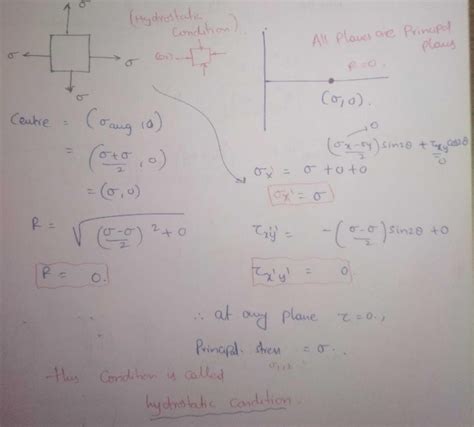 σ
(Hydrostatic
Condition)
All Planes are Principal
planes
σ
σ
(or)
R=0.
σ
(σ,0).
Centre = (σavg, 0)
= (σ+σ/2, 0)
= (σ,0)
0
(σx-σy/2) sin2θ + τxy cos2θ
0
σx' = σ+0+0
σx' = σ
R = √(σ-σ/2)²+0
τx'y' = -(σ-σ/2) sin2θ +0
R = 0.
τx'y' = 0
∴ at any plane τ=0.,
Principal stress = σ.
This Condition is called
hydrostatic condition.